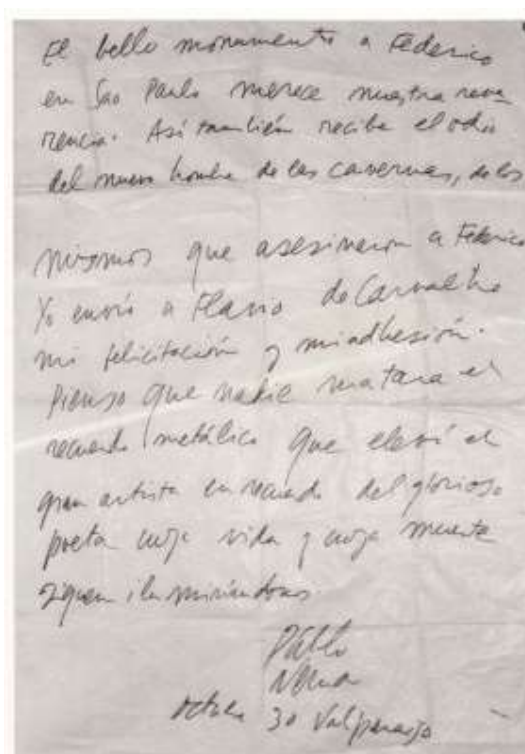 El bello monumento a Federico
en Sao Paulo merece nuestra reve
rencia. Así también recibe el odio
del nuevo hombre de las cavernas, de los
mismos que asesinaron a Federico
Yo envío a Flavio de Carvalho
mi felicitación y mi adhesión.
Pienso que nadie matara el
recuerdo metálico que elevó el
gran artista en recuerdo del glorioso
poeta cuya vida y cuya muerte
siguen iluminándonos
Pablo
Neruda
octubre 30 Valparaiso